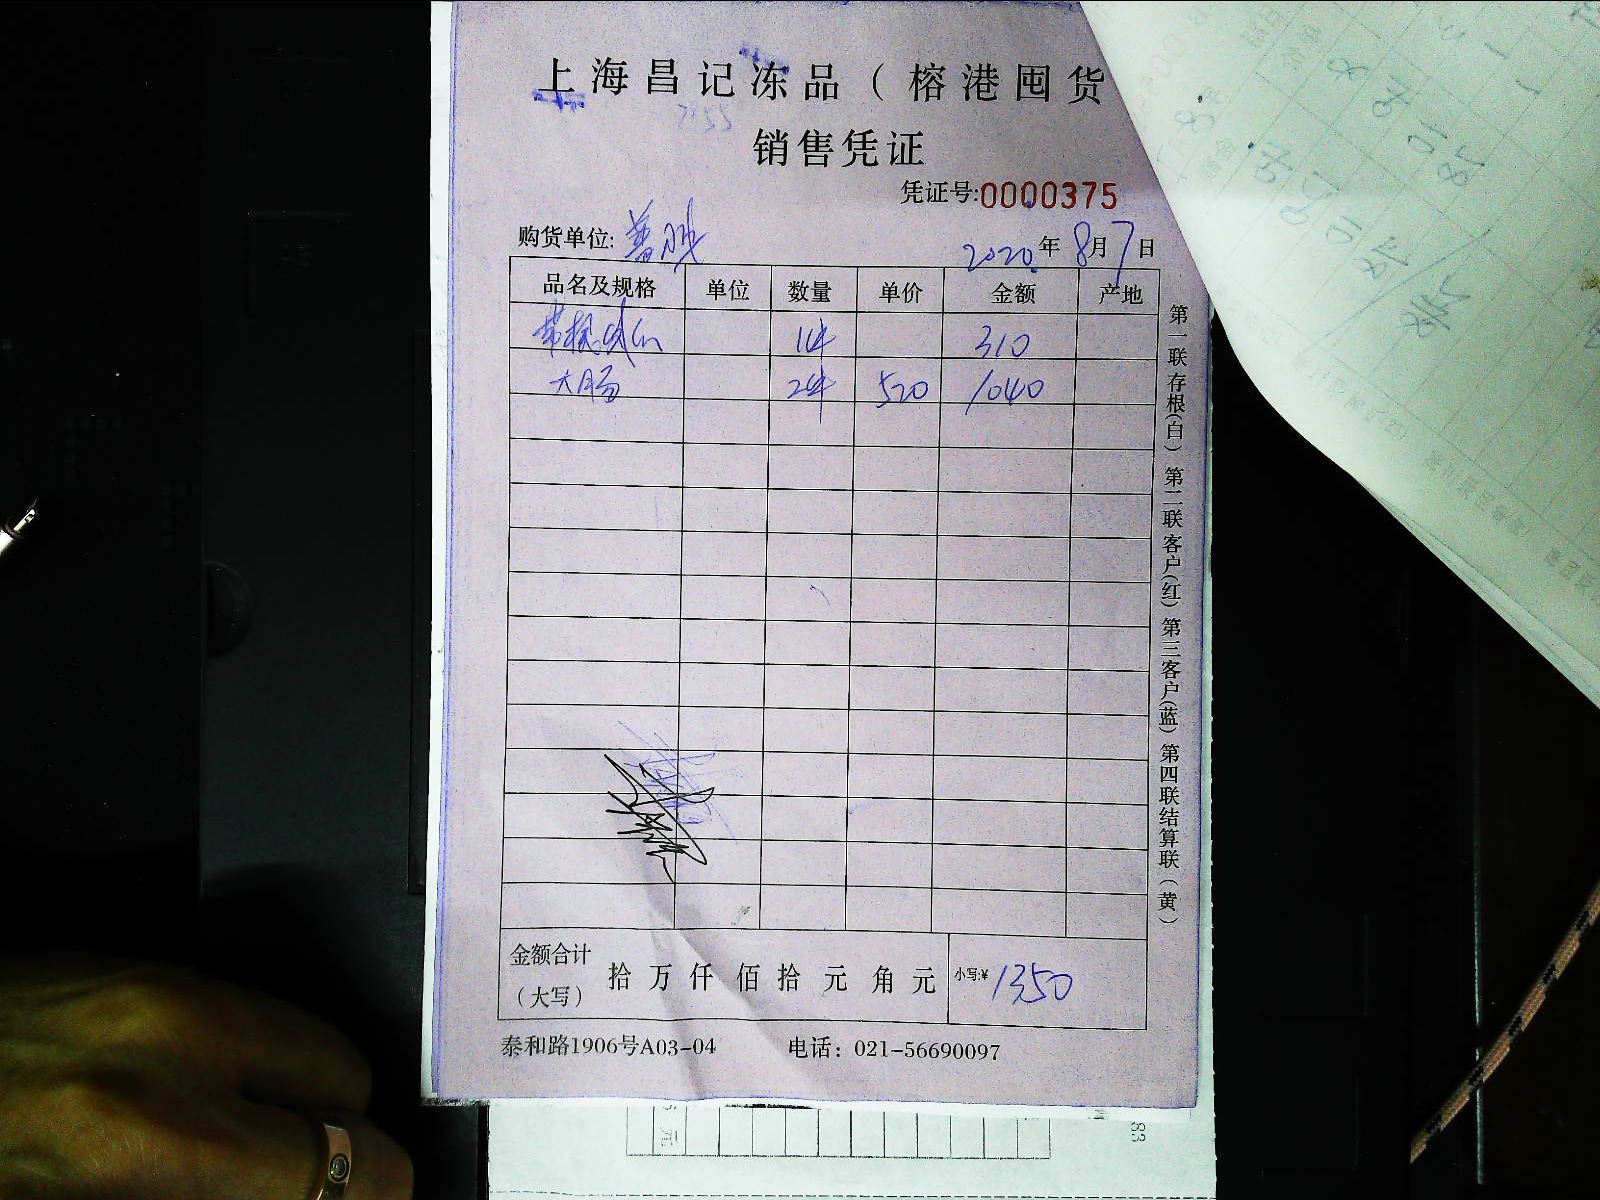 上海昌记冻品（榕港囤货
销售凭证
凭证号:0000375
购货单位: 2020年8月7日
品名及规格 单位 数量 单价 金额 产地
1件 310
大肠 2件 520 1040
金额合计（大写） 拾 万 仟 佰 拾 元 角 元 小写:¥ 1350
泰和路1906号A03-04 电话：021-56690097
第一联存根(白) 第二联客户(红) 第三客户(蓝) 第四联结算联(黄)